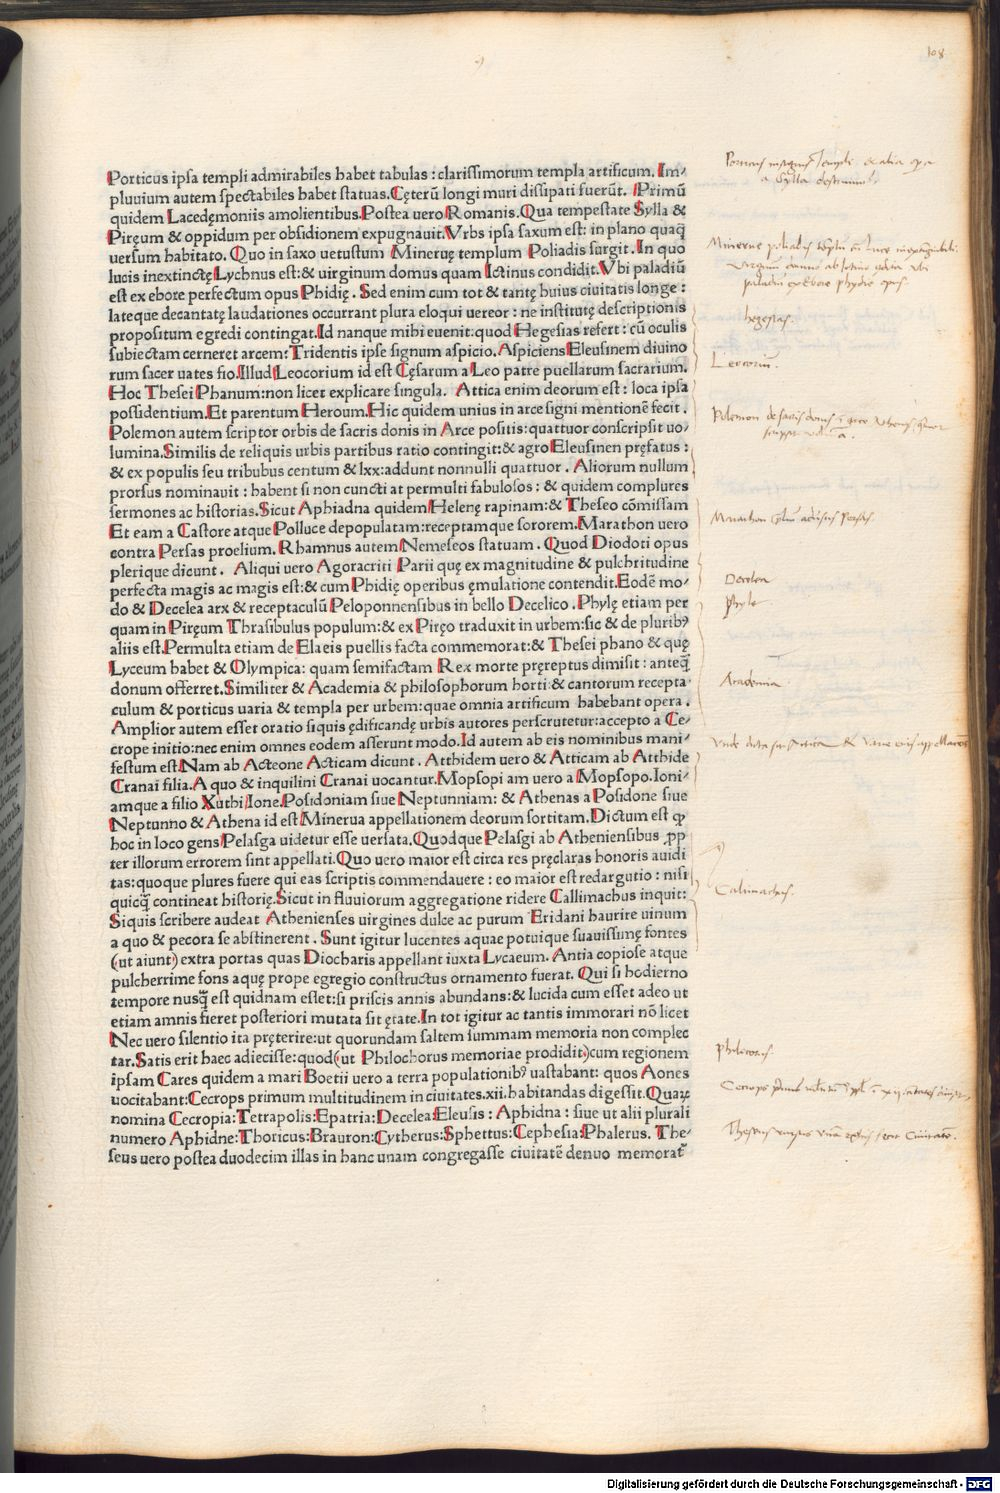 108
Porticus ipsa templi admirabiles habet tabulas : clarissimorum templa artificum. Im⸗
pluuium autem spectabiles habet statuas. Cęterũ longi muri dissipati fuerũt. Primũ
quidem Lacedęmoniis amolientibus. Postea uero Romanis. Qua tempestate Sylla &
Piręum & oppidum per obsidionem expugnauit. Vrbs ipsa saxum est: in plano quaq̃
uersum habitato. Quo in saxo uetustum Mineruę templum Poliadis surgit. In quo
lucis inextinctę Lychnus est: & uirginum domus quam Ictinus condidit. Vbi paladiũ
est ex ebore perfectum opus Phidię. Sed enim cum tot & tantę huius ciuitatis longe :
lateque decantatę laudationes occurrant plura eloqui uereor : ne institutę descriptionis
propositum egredi contingat. Id nanque mihi euenit: quod Hegesias refert : cũ oculis
subiectam cerneret arcem: Tridentis ipse signum aspicio. Aspiciens Eleusinem diuino
rum sacer uates fio. Illud Leocorium id est Cęsarum a Leo patre puellarum sacrarium.
Hoc Thesei Phanum: non licet explicare singula. Attica enim deorum est : loca ipsa
possidentium. Et parentum Heroum. Hic quidem unius in arce signi mentionẽ fecit.
Polemon autem scriptor orbis de sacris donis in Arce positis: quattuor conscripsit uo⸗
lumina. Similis de reliquis urbis partibus ratio contingit: & agro Eleusinen pręfatus :
& ex populis seu tribubus centum & lxx: addunt nonnulli quattuor. Aliorum nullum
prorsus nominauit : habent si non cuncti at permulti fabulosos : & quidem complures
sermones ac historias. Sicut Aphiadna quidem Helenę rapinam: & Theseo cõmissam
Et eam a Castore atque Polluce depopulatam: receptamque sororem. Marathon uero
contra Persas proelium. Rhamnus autem Nemeseos statuam. Quod Diodoti opus
plerique dicunt. Aliqui uero Agoracriti Parii quę ex magnitudine & pulchritudine
perfecta magis ac magis est: & cum Phidię operibus ęmulatione contendit. Eodẽ mo⸗
do & Decelea arx & receptaculũ Peloponnensibus in bello Decelico. Phylę etiam per
quam in Piręum Thrasibulus populum: & ex Piręo traduxit in urbem: sic & de pluribꝰ
aliis est. Permulta etiam de Elaeis puellis facta commemorat: & Thesei phano & quę
Lyceum habet & Olympica: quam semifactam Rex morte pręreptus dimisit : anteq̃
donum offerret. Similiter & Academia & philosophorum horti: & cantorum recepta⸗
culum & porticus uaria & templa per urbem: quae omnia artificum habebant opera.
Amplior autem esset oratio si quis ędificandę urbis autores perscrutetur: accepto a Ce⸗
crope initio: nec enim omnes eodem asserunt modo. Id autem ab eis nominibus mani⸗
festum est. Nam ab Acteone Acticam dicunt. Atthidem uero & Atticam ab Atthide
Cranai filia. A quo & inquilini Cranai uocantur. Mopsopi am uero a Mopsopo. Ioni⸗
amque a filio Xuthi Ione. Posidoniam siue Neptunniam: & Athenas a Posidone siue
Neptunno & Athena id est Minerua appellationem deorum sortitam. Dictum est ꝙ
hoc in loco gens Pelasga uidetur esse uersata. Quodque Pelasgi ab Atheniensibus ꝓp
ter illorum errorem sint appellati. Quo uero maior est circa res pręclaras honoris auidi
tas: quoque plures fuere qui eas scriptis commendauere : eo maior est redargutio : nisi
quicq̃ contineat historię. Sicut in fluuiorum aggregatione ridere Callimachus inquit:
Siquis scribere audeat Athenienses uirgines dulce ac purum Eridani haurire uinum
a quo & pecora se abstinerent. Sunt igitur lucentes aquae potuique suauissimę fontes
(ut aiunt) extra portas quas Diocharis appellant iuxta Lycaeum. Antia copiose atque
pulcherrime fons aquę prope egregio constructus ornamento fuerat. Qui si hodierno
tempore nusq̃ est quidnam esset: si priscis annis abundans: & lucida cum esset adeo ut
etiam amnis fieret posteriori mutata sit ętate. In tot igitur ac tantis immorari nõ licet
Nec uero silentio ita pręterire: ut quorundam saltem summam memoria non complec
tar. Satis erit haec adiecisse: quod (ut Philochorus memoriae prodidit) cum regionem
ipsam Cares quidem a mari Boetii uero a terra populationibꝰ uastabant: quos Aones
uocitabant: Cecrops primum multitudinem in ciuitates. xii. habitandas digessit. Quaꝝ
nomina Cecropia: Tetrapolis: Epatria: Decelea: Eleusis : Aphidna : siue ut alii plurali
numero Aphidne: Thoricus: Brauron: Cytherus: Sphettus: Cephesia: Phalerus. The⸗
seus uero postea duodecim illas in hanc unam congregasse ciuitatẽ denuo memorat᷑
hegesias.
Leocorium.
Decelea
Phyle
Academia
Calimachus.
Philocorus.
Digitalisierung gefördert durch die Deutsche Forschungsgemeinschaft - DFG